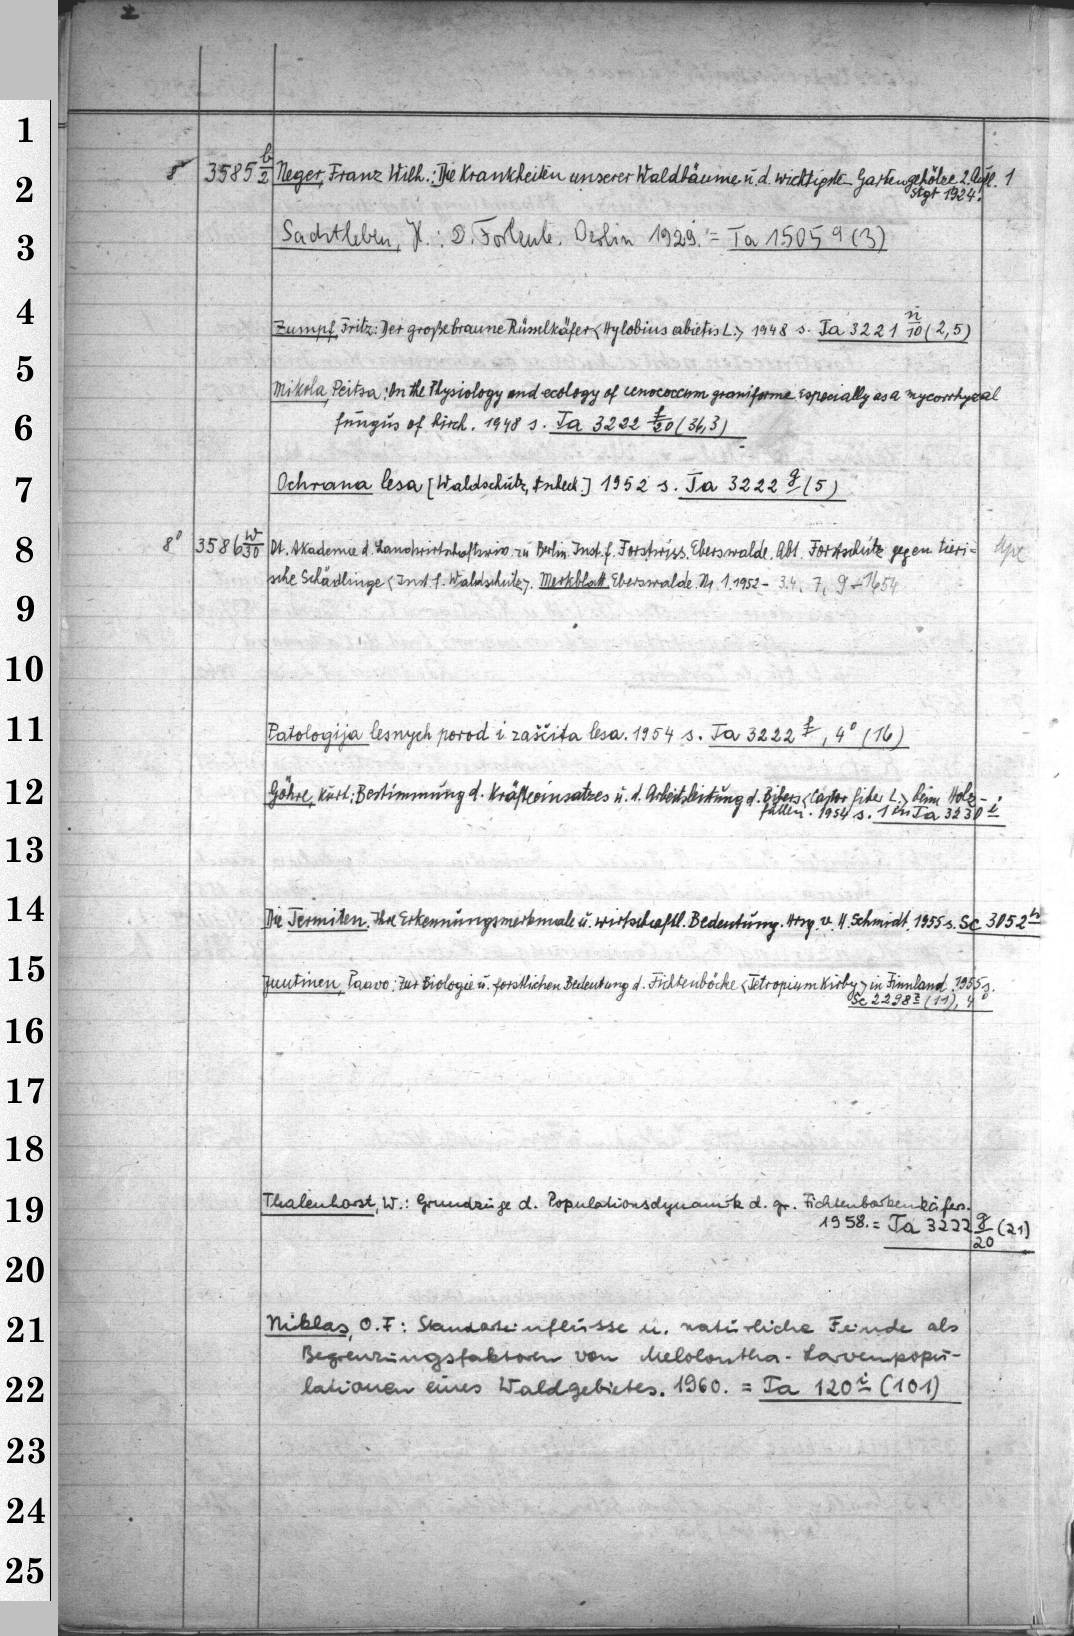 1
2
3
4
5
6
7
8
9
10
11
12
13
14
15
16
17
18
19
20
21
22
23
24
25
8° 3585 b/2 Neger, Franz Wilh.: Die Krankheiten unserer Waldbäume u. d. wichtigste Gartengehölze 2. Aufl. 1
Stgt 1924.
Sachtleben, H.: D. Forleule. Berlin 1929. = Ta 1505 q (3)
Zumpf Fritz: Der große braune Rüsselkäfer <Hylobius abietis L.> 1948 s. Ta 3221 n/10 (2,5)
Mikola, Peitsa: On the Physiology and ecology of cenococcum graniforme especially as a mycorrhyzal
fungus of Birch. 1948 s. Ta 3222 f/20 (36,3)
Ochrana lesa [Waldschutz, tschech.] 1952 s. Ta 3222 g (5)
8° 3586 w/30 Dt. Akademie d. Landwirtschaftswiss. zu Berlin. Inst. f. Forstwiss. Eberswalde. Abt. Forstschutz gegen tieri=
sche Schädlinge <Inst. f. Waldschutz>. Merkblatt Eberswalde. Nr. 1.1952- 3.4. 7, 9-1654
Patologija lesnych porod i zaščita lesa. 1954 s. Ta 3222 f, 4° (16)
Göhre, Kurt: Bestimmung d. Kräfteeinsatzes u. d. Arbeitsleistung d. Bibers <Castor fiber L.> beim Holz-
fällen. 1954 s. 1 en Ta 3230 i
Die Termiten. Ihre Erkennungsmerkmale u. wirtschaftl. Bedeutung. Hrsg. v. H. Schmidt. 1955 s. Sc 3052 h
Juutinen, Paavo: Zur Biologie u. forstlichen Bedeutung d. Fichtenböcke <Tetropium Kirby> in Finnland. 1955 s.
Sc 2298 z (11), 4°
Thalenhorst, W.: Grundzüge d. Populationsdynamik d. gr. Fichtenborkenkäfers.
1958. = Ta 3222 g/20 (21)
Niklas, O.F: Standorteinflüsse u. natürliche Feinde als
Begrenzungsfaktoren von Melolontha-Larvenpopu-
lationen eines Waldgebietes. 1960. = Ta 120 i (101)